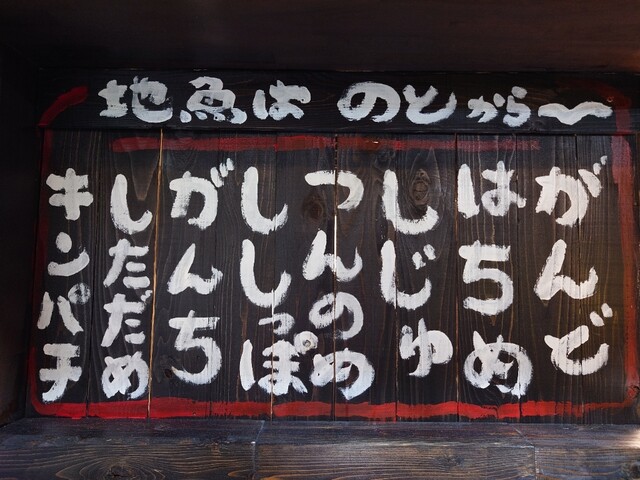 地魚は のとから～
がんど
はちめ
しじゅ
つんのめ
ししっぽ
がんち
しただめ
キンパチ